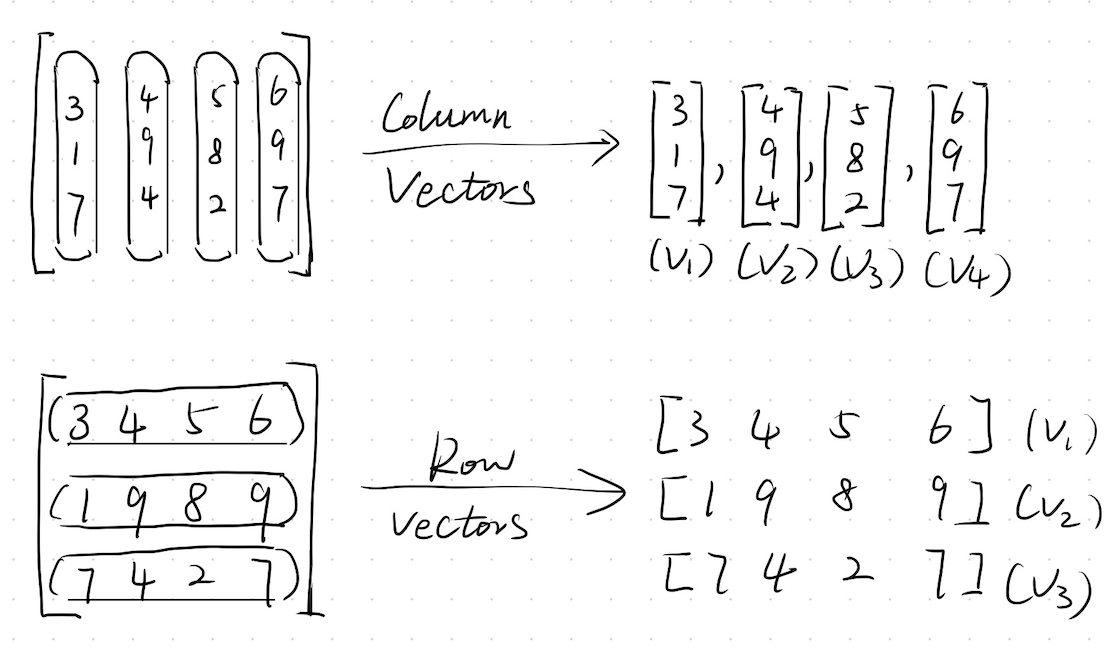 3 4 5 6
1 9 8 9
7 4 2 7
Column
Vectors
[3 [4 [5 [6
1 9 8 9
7], 4], 2], 7]
(V1) (V2) (V3) (V4)
(3 4 5 6)
(1 9 8 9)
(7 4 2 7)
Row
vectors
[3 4 5 6] (V1)
[1 9 8 9] (V2)
[7 4 2 7] (V3)